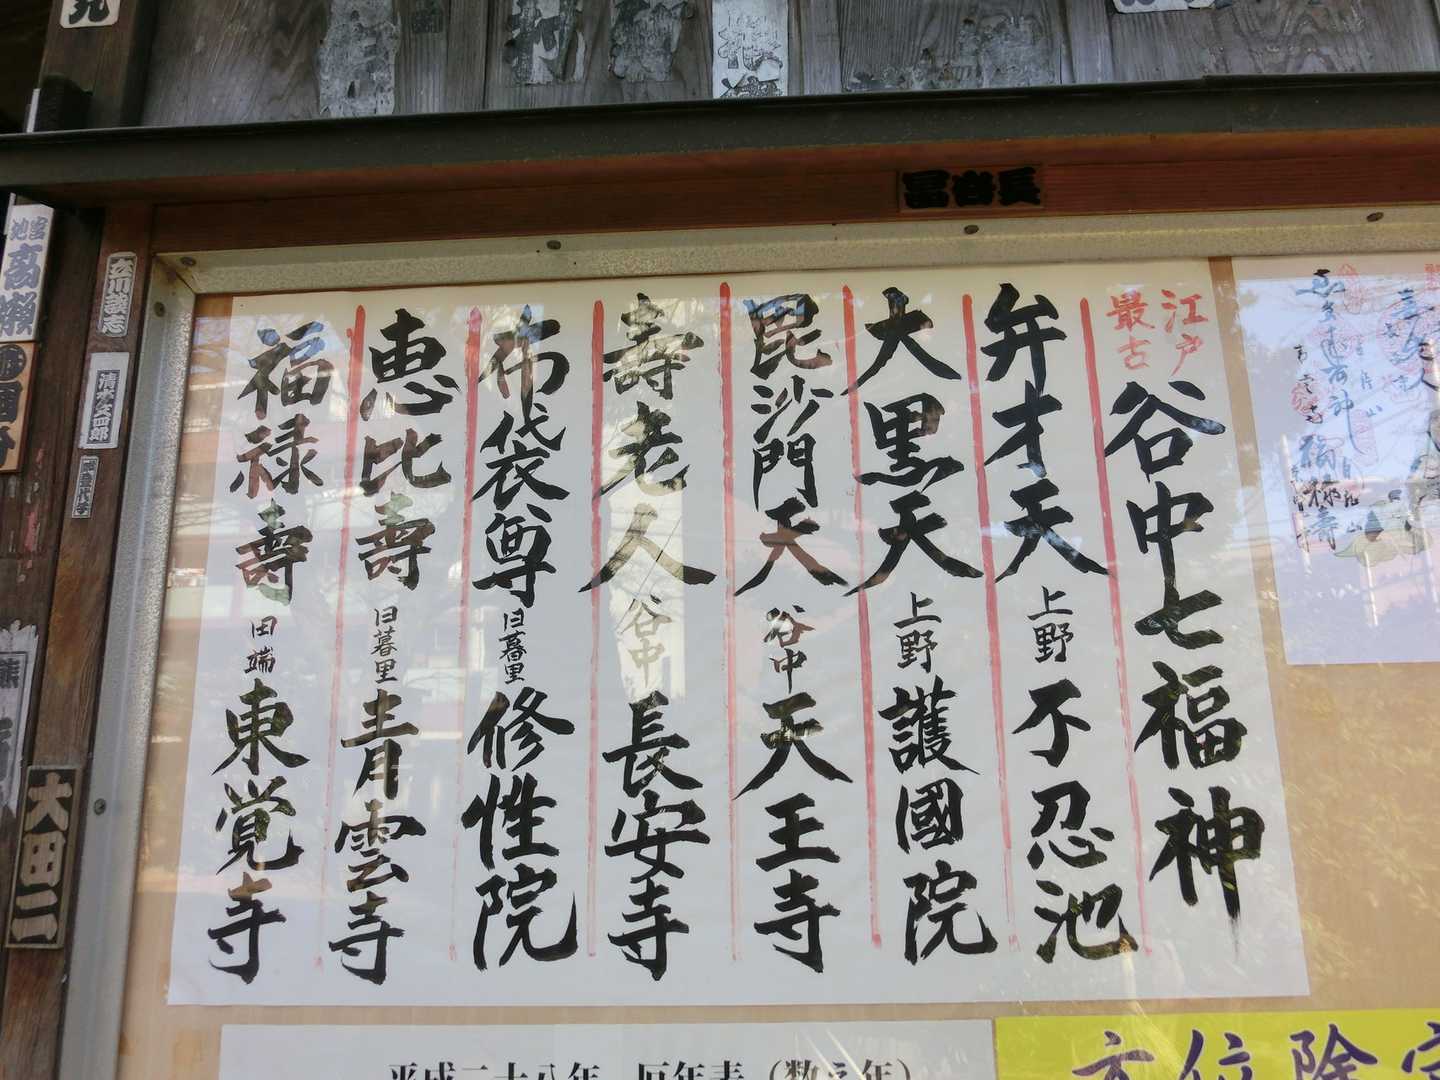 江戸
最古
谷中七福神
弁才天 上野 不忍池
大黒天 上野 護國院
毘沙門天 谷中 天王寺
壽老人 谷中 長安寺
布袋尊 日暮里 修性院
恵比壽 日暮里 青雲寺
福禄壽 田端 東覚寺
平成二十八年 厄年表(数え年)
方位除
立川談志
清水女四郎
大田二